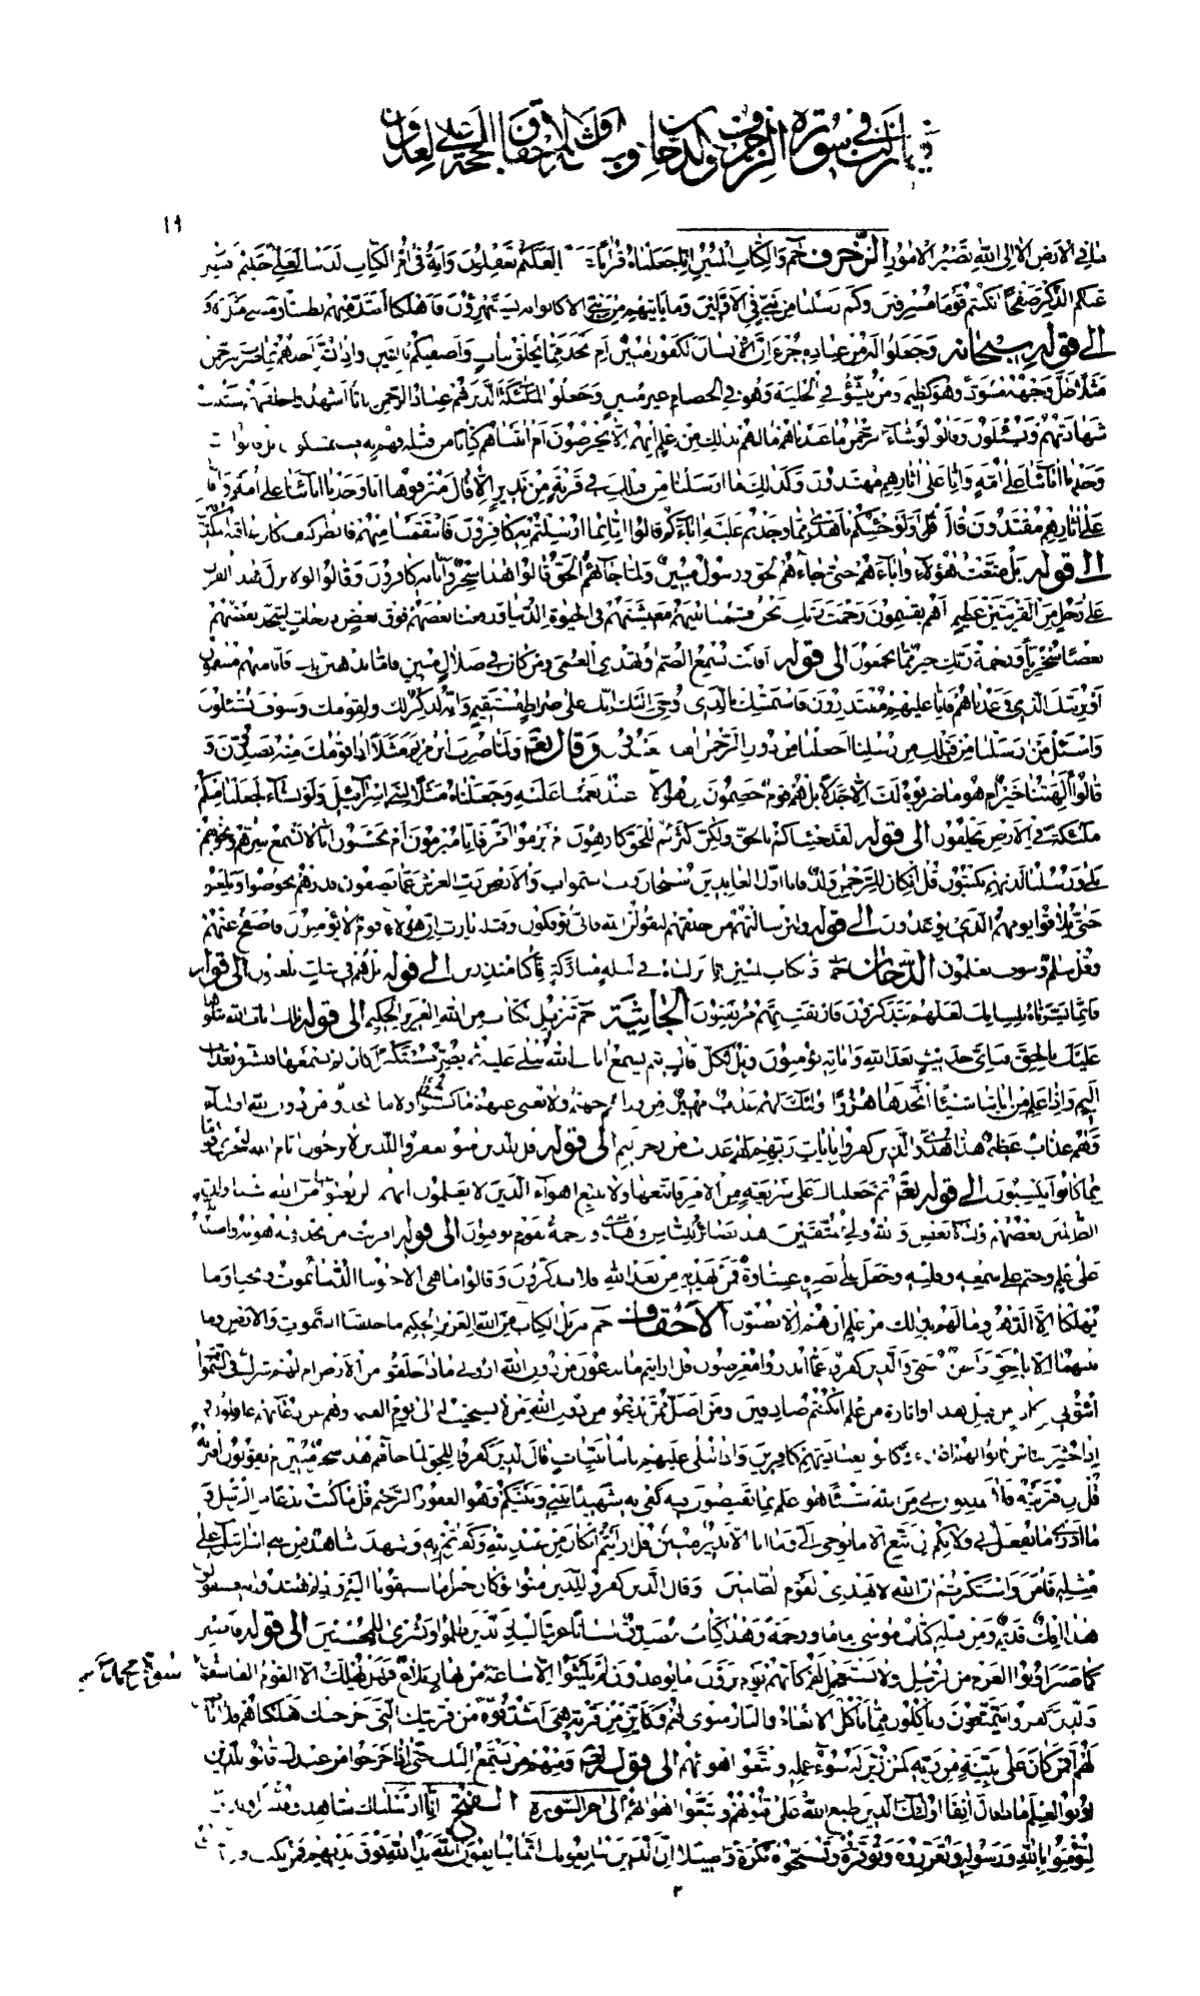 في سورة الزخرف والدخان والاحقاف
١٩
ما في الارض الا الى الله تصير الامور الزخرف حم والكتاب المبين انا جعلناه قرانا لعلكم تعقلون وانه في ام الكتاب لدينا لعلي حكيم
عنكم الذكر صفحا ان كنتم قوما مسرفين وكم ارسلنا من نبي في الاولين وما ياتيهم من نبي الا كانوا به يستهزؤن فاهلكنا اشد منهم بطشا ومضى مثل الاولين
الى قوله سبحانه وجعلوا له من عباده جزءا ان الانسان لكفور مبين ام اتخذ مما يخلق بنات واصفيكم بالبنين واذا بشر احدهم بما ضرب للرحمن
مثلا ظل وجهه مسودا وهو كظيم ومن ينشؤ في الحلية وهو في الخصام غير مبين وجعلوا الملئكة الذين هم عباد الرحمن اناثا اشهدوا خلقهم ستكتب
شهادتهم ويسئلون وقالوا لو شاء الرحمن ما عبدناهم ما لهم بذلك من علم ان هم الا يخرصون ام اتيناهم كتابا من قبله فهم به مستمسكون بل قالوا انا
وجدنا اباءنا على امة وانا على اثارهم مهتدون وكذلك ما ارسلنا من قبلك في قرية من نذير الا قال مترفوها انا وجدنا اباءنا على امة وانا
على اثارهم مقتدون قال اولو جئتكم باهدى مما وجدتم عليه اباءكم قالوا انا بما ارسلتم به كافرون فانتقمنا منهم فانظر كيف كان عاقبة المكذبين
الى قوله بل متعت هؤلاء واباءهم حتى جاءهم الحق ورسول مبين ولما جاءهم الحق قالوا هذا سحر وانا به كافرون وقالوا لولا نزل هذا القران
على رجل من القريتين عظيم اهم يقسمون رحمت ربك نحن قسمنا بينهم معيشتهم في الحيوة الدنيا ورفعنا بعضهم فوق بعض درجات ليتخذ بعضهم
بعضا سخريا ورحمة ربك خير مما يجمعون الى قوله افانت تسمع الصم او تهدي العمي ومن كان في ضلال مبين فاما نذهبن بك فانا منهم منتقمون
او نرينك الذي وعدناهم فانا عليهم مقتدرون فاستمسك بالذي اوحي اليك انك على صراط مستقيم وانه لذكر لك ولقومك وسوف تسئلون
واسئل من ارسلنا من قبلك من رسلنا اجعلنا من دون الرحمن الهة يعبدون وقال تعم ولما ضرب ابن مريم مثلا اذا قومك منه يصدون و
قالوا االهتنا خير ام هو ما ضربوه لك الا جدلا بل هم قوم خصمون ان هو الا عبد انعمنا عليه وجعلناه مثلا لبني اسرائيل ولو نشاء لجعلنا منكم
ملئكة في الارض يخلفون الى قوله لقد جئناكم بالحق ولكن اكثركم للحق كارهون ام ابرموا امرا فانا مبرمون ام يحسبون انا لا نسمع سرهم ونجويهم
بلى ورسلنا لديهم يكتبون قل ان كان للرحمن ولد فانا اول العابدين سبحان رب السموات والارض رب العرش عما يصفون فذرهم يخوضوا ويلعبوا
حتى يلاقوا يومهم الذي يوعدون الى قوله ولئن سالتهم من خلقهم ليقولن الله فانى يؤفكون وقيله يارب ان هؤلاء قوم لا يؤمنون فاصفح عنهم
وقل سلام فسوف يعلمون الدخان حم والكتاب المبين انا انزلناه في ليلة مباركة انا كنا منذرين الى قوله بل هم في شك يلعبون الى قوله
فانما يسرناه بلسانك لعلهم يتذكرون فارتقب انهم مرتقبون الجاثية حم تنزيل الكتاب من الله العزيز الحكيم الى قوله تلك ايات الله نتلوها
عليك بالحق فباي حديث بعد الله واياته يؤمنون ويل لكل افاك اثيم يسمع ايات الله تتلى عليه ثم يصر مستكبرا كان لم يسمعها فبشره بعذاب
اليم واذا علم من اياتنا شيئا اتخذها هزوا اولئك لهم عذاب مهين من ورائهم جهنم ولا يغني عنهم ما كسبوا شيئا ولا ما اتخذوا من دون الله اولياء
ولهم عذاب عظيم هذا هدى والذين كفروا بايات ربهم لهم عذاب من رجز اليم الى قوله قل للذين امنوا يغفروا للذين لا يرجون ايام الله ليجزي قوما
بما كانوا يكسبون الى قوله تعم ثم جعلناك على شريعة من الامر فاتبعها ولا تتبع اهواء الذين لا يعلمون انهم لن يغنوا عنك من الله شيئا وان
الظالمين بعضهم اولياء بعض والله ولي المتقين هذا بصائر للناس وهدى ورحمة لقوم يوقنون الى قوله افرايت من اتخذ الهه هويه واضله الله
على علم وختم على سمعه وقلبه وجعل على بصره غشاوة فمن يهديه من بعد الله افلا تذكرون وقالوا ما هي الا حيوتنا الدنيا نموت ونحيا وما
يهلكنا الا الدهر وما لهم بذلك من علم ان هم الا يظنون الاحقاف حم تنزيل الكتاب من الله العزيز الحكيم ما خلقنا السموات والارض وما
بينهما الا بالحق واجل مسمى والذين كفروا عما انذروا معرضون قل ارايتم ما تدعون من دون الله اروني ماذا خلقوا من الارض ام لهم شرك في السموات
ائتوني بكتاب من قبل هذا او اثارة من علم ان كنتم صادقين ومن اضل ممن يدعو من دون الله من لا يستجيب له الى يوم القيمة وهم عن دعائهم غافلون و
اذا حشر الناس كانوا لهم اعداء وكانوا بعبادتهم كافرين واذا تتلى عليهم اياتنا بينات قال الذين كفروا للحق لما جاءهم هذا سحر مبين ام يقولون افتريه
قل ان افتريته فلا تملكون لي من الله شيئا هو اعلم بما تفيضون فيه كفى به شهيدا بيني وبينكم وهو الغفور الرحيم قل ما كنت بدعا من الرسل و
ما ادري ما يفعل بي ولا بكم ان اتبع الا ما يوحى الي وما انا الا نذير مبين قل ارايتم ان كان من عند الله وكفرتم به وشهد شاهد من بني اسرائيل على
مثله فامن واستكبرتم ان الله لا يهدي القوم الظالمين وقال الذين كفروا للذين امنوا لو كان خيرا ما سبقونا اليه واذ لم يهتدوا به فسيقولون
هذا افك قديم ومن قبله كتاب موسى اماما ورحمة وهذا كتاب مصدق لسانا عربيا لينذر الذين ظلموا وبشرى للمحسنين الى قوله فاصبر
كما صبر اولوا العزم من الرسل ولا تستعجل لهم كانهم يوم يرون ما يوعدون لم يلبثوا الا ساعة من نهار بلاغ فهل يهلك الا القوم الفاسقون
سورة محمد
والذين كفروا يتمتعون وياكلون كما تاكل الانعام والنار مثوى لهم وكاين من قرية هي اشد قوة من قريتك التي اخرجتك اهلكناهم فلا ناصر
لهم افمن كان على بينة من ربه كمن زين له سوء عمله واتبعوا اهوائهم الى قوله تعم ومنهم من يستمع اليك حتى اذا خرجوا من عندك قالوا للذين
اوتوا العلم ماذا قال انفا اولئك الذين طبع الله على قلوبهم واتبعوا اهوائهم الى اخر السورة الفتح انا ارسلناك شاهدا ومبشرا ونذيرا
لتؤمنوا بالله ورسوله وتعزروه وتوقروه وتسبحوه بكرة واصيلا ان الذين يبايعونك انما يبايعون الله يد الله فوق ايديهم فمن نكث
٢